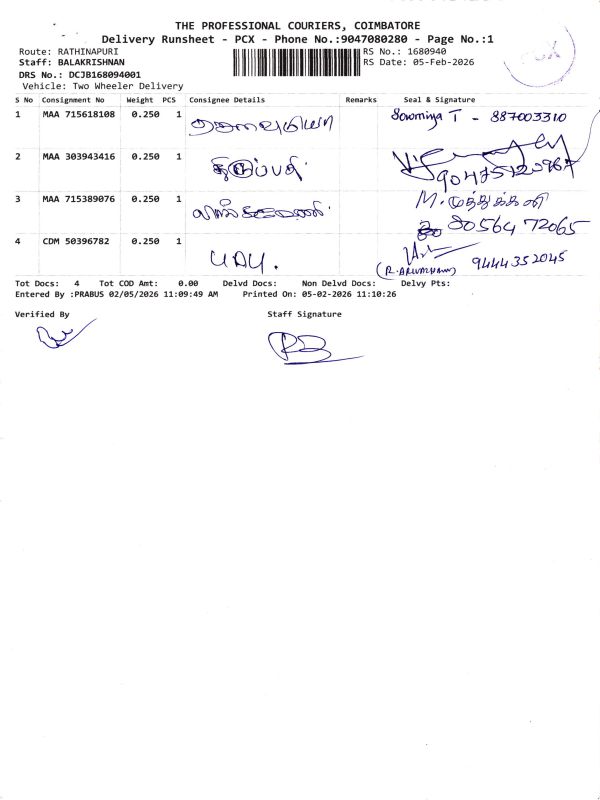 THE PROFESSIONAL COURIERS, COIMBATORE
Delivery Runsheet - PCX - Phone No.:9047080280 - Page No.:1
Route: RATHINAPURI
RS No.: 1680940
Staff: BALAKRISHNAN
RS Date: 05-Feb-2026
DRS No.: DCJB168094001
Vehicle: Two Wheeler Delivery
PCX
S No Consignment No Weight PCS Consignee Details Remarks Seal & Signature
1 MAA 715618108 0.250 1 Sowmiya T - 887003310
2 MAA 303943416 0.250 1 திருப்பதி 9047512096
3 MAA 715389076 0.250 1 M. முத்துக்கனி
80564 72065
4 CDM 50396782 0.250 1 UDY. 9444352045
Tot Docs: 4 Tot COD Amt: 0.00 Delvd Docs: Non Delvd Docs: Delvy Pts:
Entered By :PRABUS 02/05/2026 11:09:49 AM Printed On: 05-02-2026 11:10:26
Verified By Staff Signature